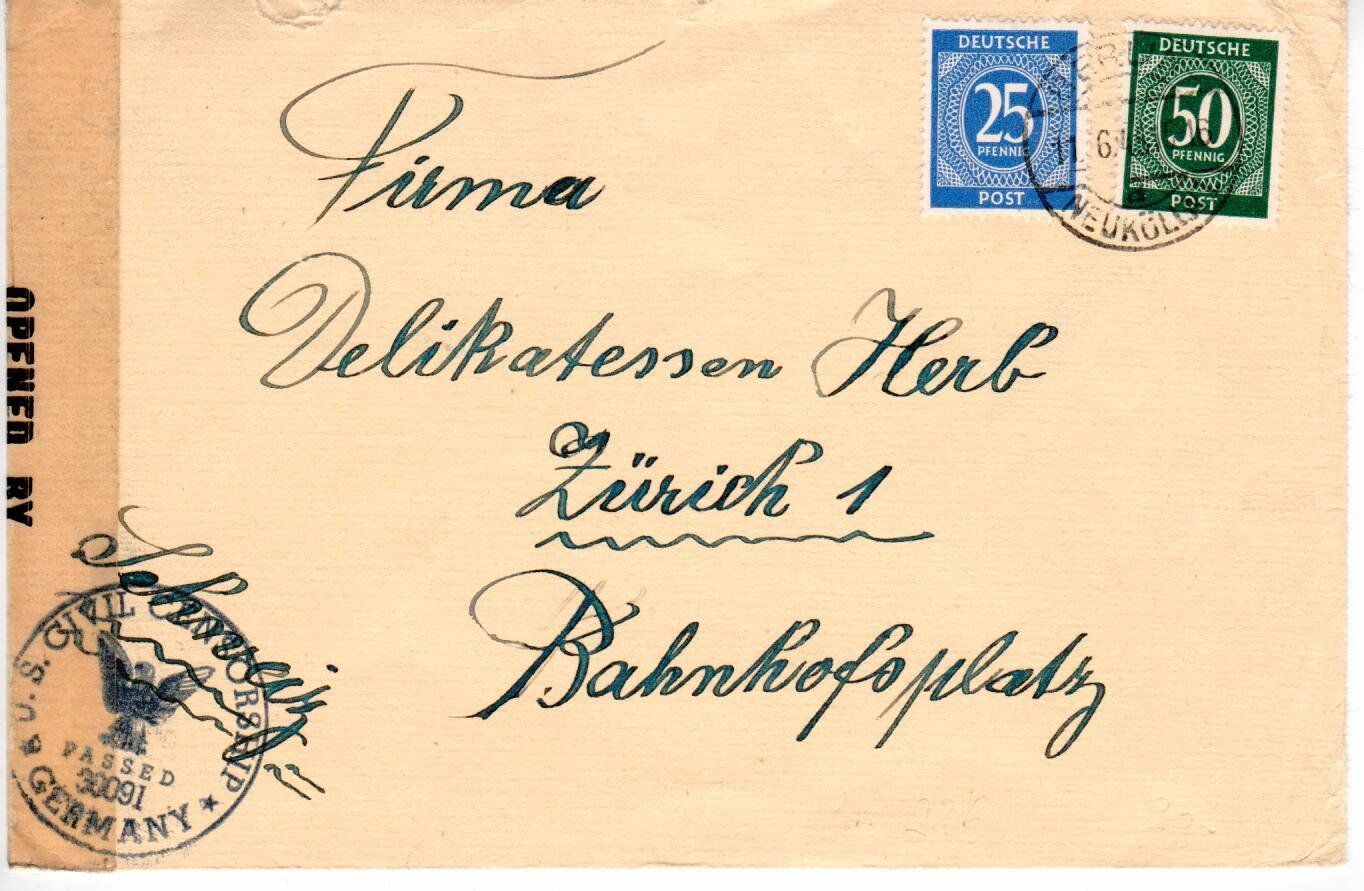 DEUTSCHE
25
PFENNIG
POST
DEUTSCHE
50
PFENNIG
POST
Firma
Delikatessen Herb
Zürich 1
Bahnhofsplatz
Schweiz
OPENED BY
U.S. CIVIL CENSORSHIP
PASSED
30091
GERMANY